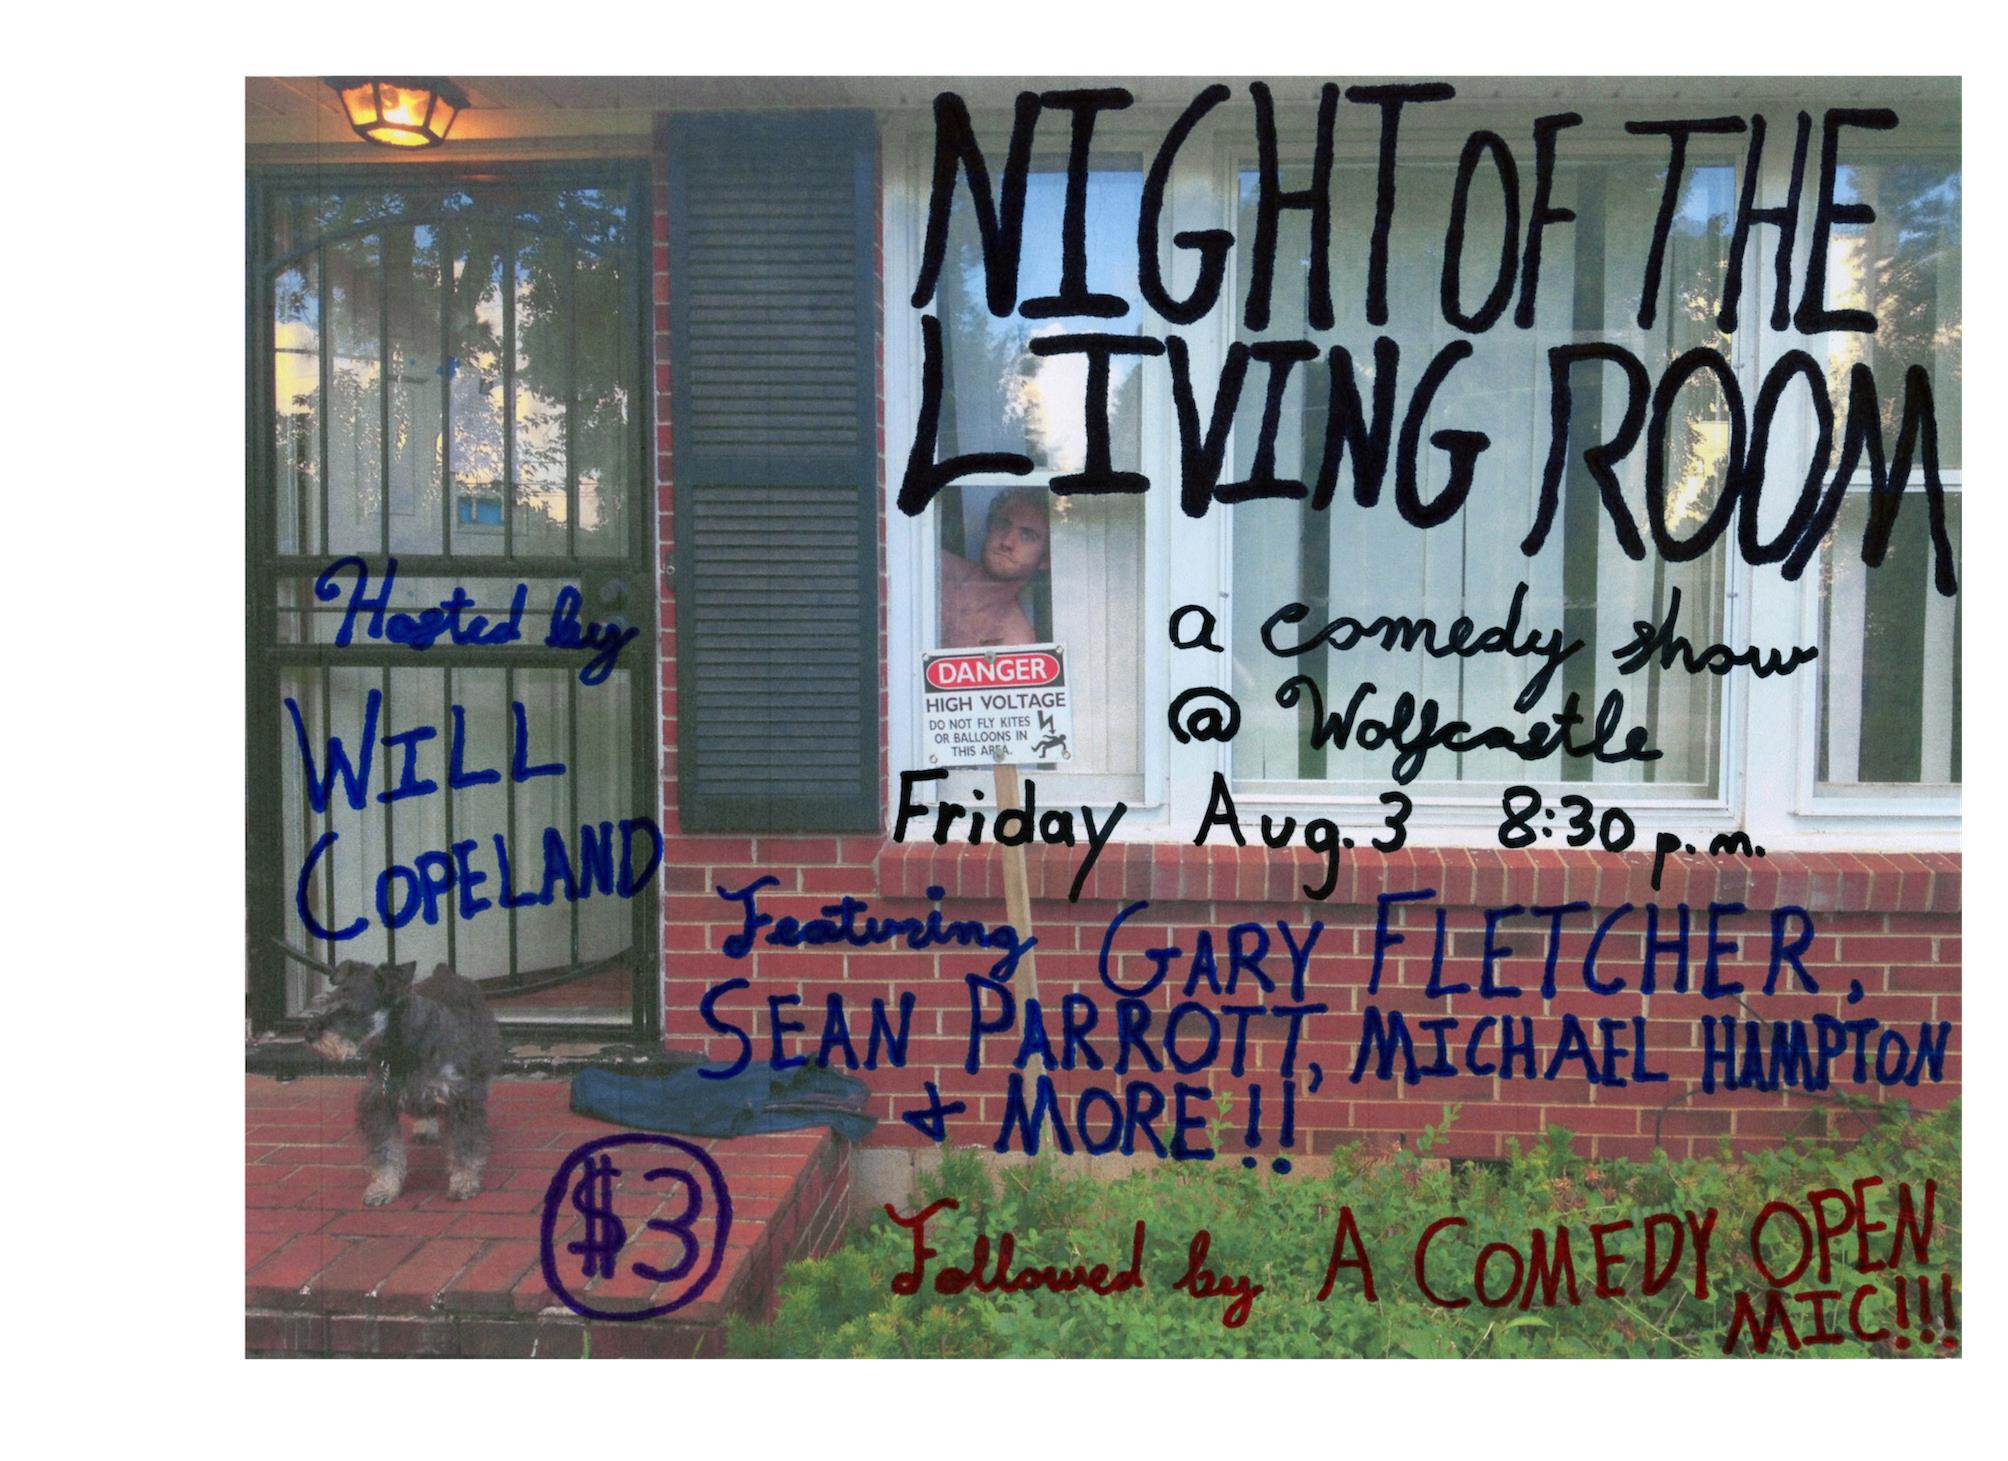 NIGHT OF THE
LIVING ROOM
a comedy show
@ Wolfcastle
Friday Aug. 3 8:30 p.m.
DANGER
HIGH VOLTAGE
DO NOT FLY KITES
OR BALLOONS IN
THIS AREA.
Hosted by
WILL
COPELAND
Featuring GARY FLETCHER,
SEAN PARROTT, MICHAEL HAMPTON
& MORE!!
$3
Followed by A COMEDY OPEN
MIC!!!